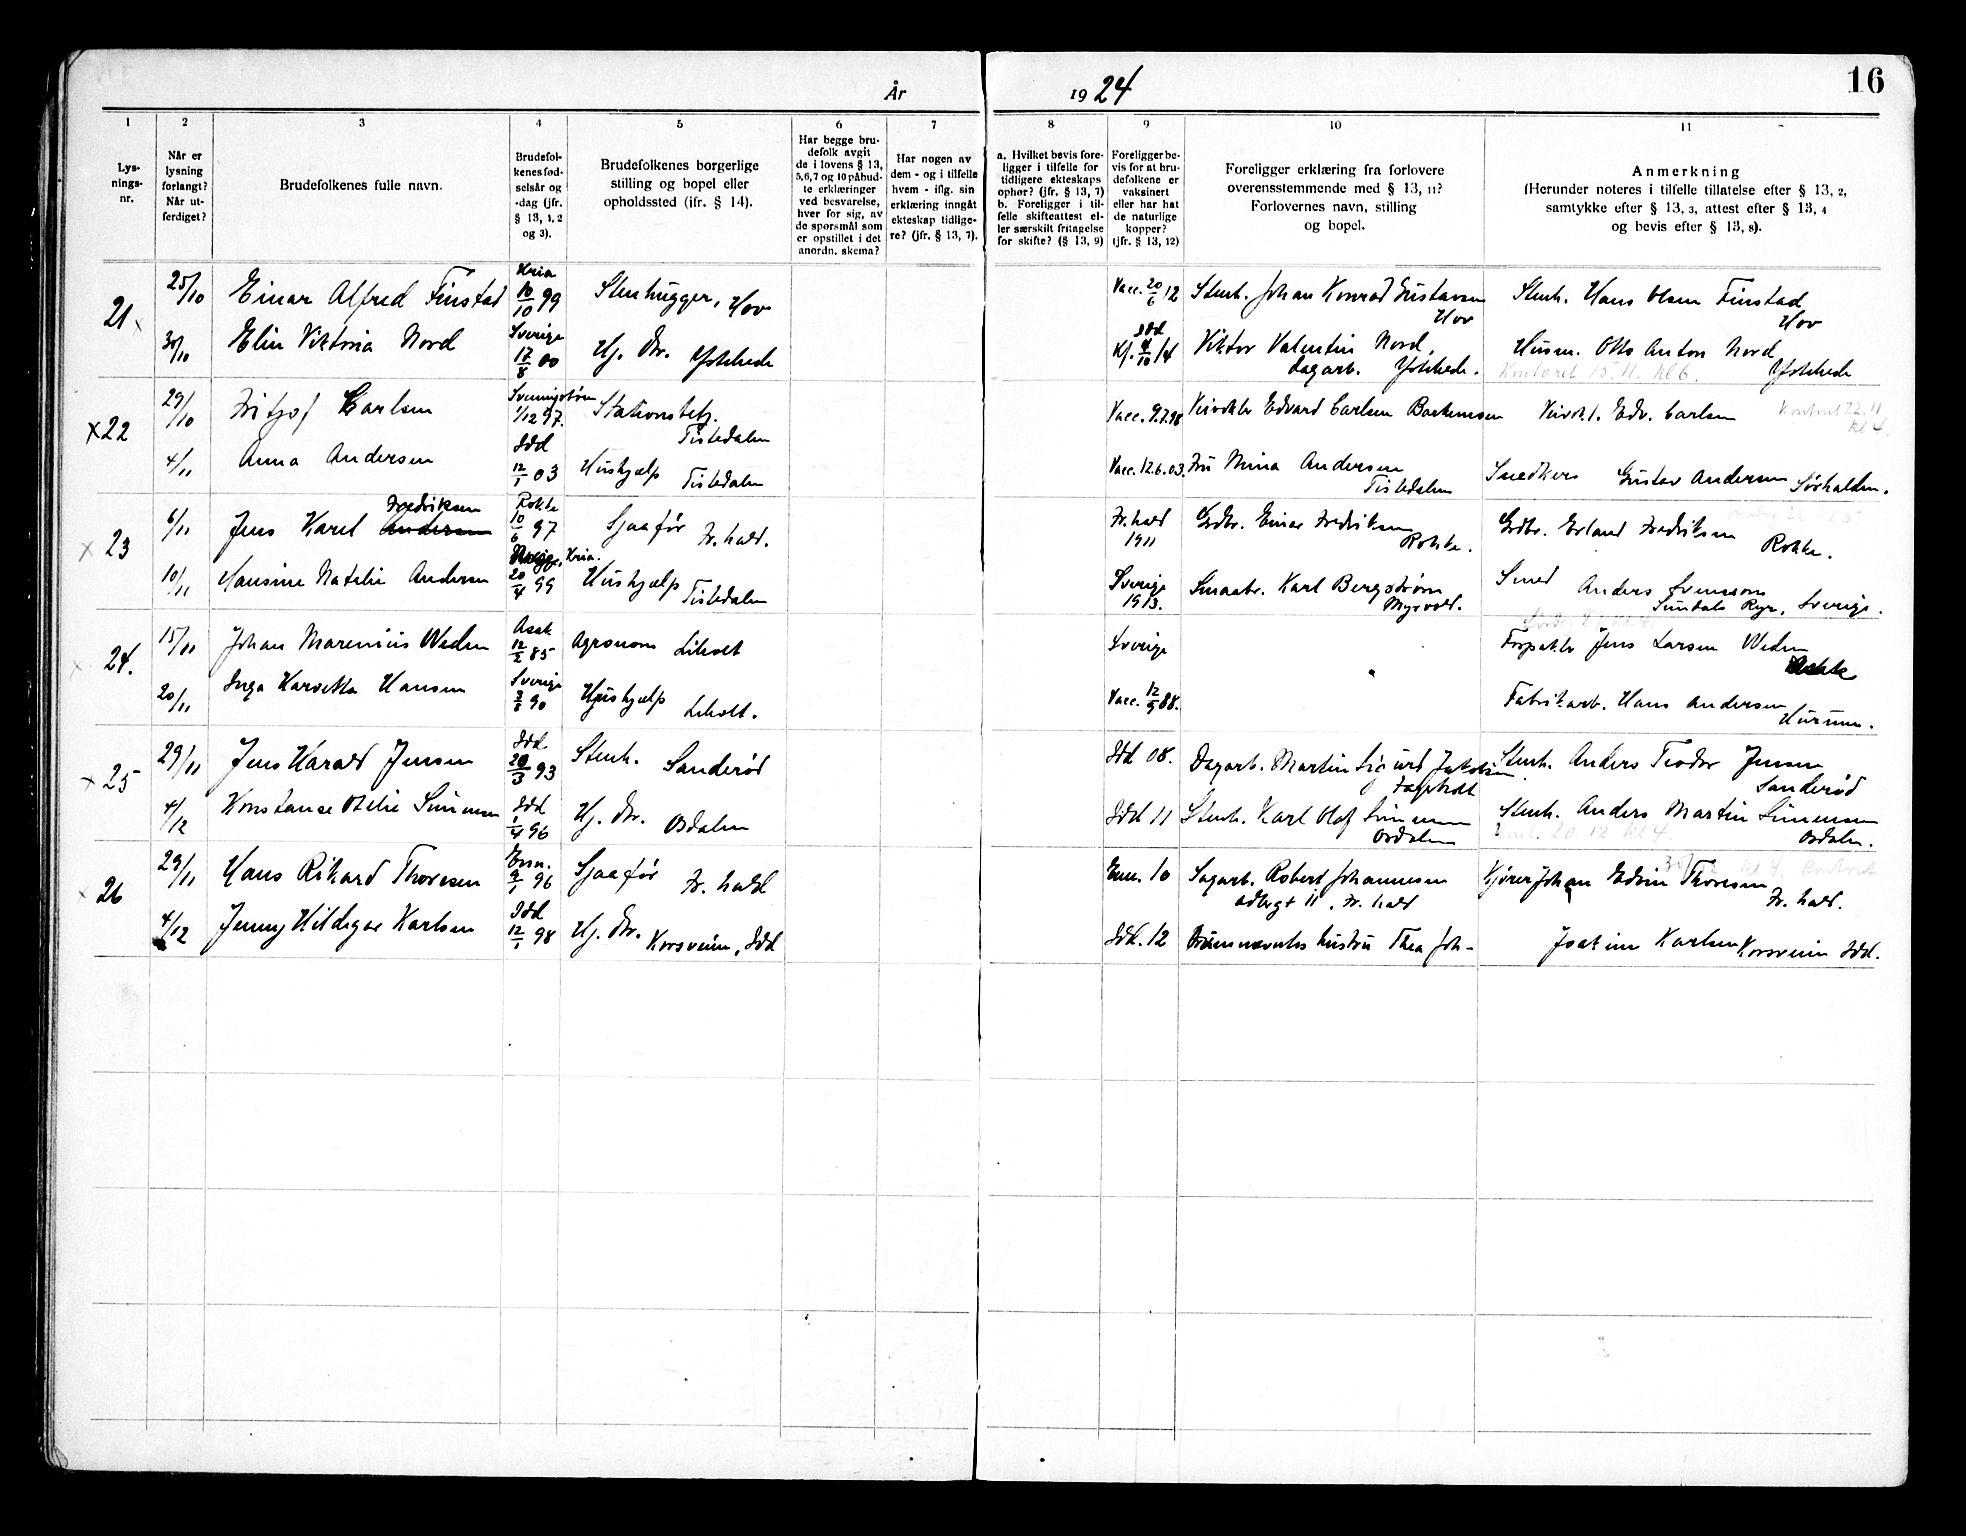 År 1924
16
1 2 3 4 5 6 7 8 9 10 11
Lys-
nings-
nr.
Når er
lysning
forlangt?
Når ut-
ferdiget?
Brudefolkenes fulle navn.
Brudefol-
kenes fød-
selsår og
-dag (jfr.
§ 13, 1, 2
og 3).
Brudefolkenes borgerlige
stilling og bopel eller
opholdssted (ifr. § 14).
Har begge bru-
defolk avgit
de i lovens § 13,
5,6,7 og 10 påbud-
te erklæringer
ved besvarelse,
hver for sig, av
de spørsmål som
er opstillet i det
anordn. skema?
Har nogen av
dem - og i tilfelle
hvem - iflg. sin
erklæring inngåt
ekteskap tidlige-
re? (jfr. § 13, 7).
a. Hvilket bevis fore-
ligger i tilfelle for
tidligere ekteskaps
ophør? (jfr. § 13, 7)
b. Foreligger i til-
felle skifteattest el-
ler særskilt fritagelse
for skifte? (§ 13, 9)
Foreligger be-
vis for at bru-
defolkene er
vaksinert
eller har hat
de naturlige
kopper?
(jfr. § 13, 12)
Foreligger erklæring fra forlovere
overensstemmende med § 13, 11?
Forlovernes navn, stilling
og bopel.
Anmerkning
(Herunder noteres i tilfelle tillatelse efter § 13, 2,
samtykke efter § 13, 3, attest efter § 13, 4
og bevis efter § 13, 8).
21 x 25/10 Einar Alfred Finstad Kria 10/10 99 Stenhugger, Hov Vacc. 20/6 12 Stenh. Johan Konrad Gustavsen Hov Stenh. Hans Olsen Finstad Hov
30/10 Elin Viktoria Nord Sverige 17/8 00 Hj. dtr. Ystehede Idd Kf. 4/10 14 Viktor Valentin Nord, dagarb. Ystehede. Husm. Otto Anton Nord Ystehede
Kontoret 15.11. kl 6.
x 22 29/10 Fritjof Carlsen 1/12 97. Stationsbetj. Tistedalen Vacc. 9.7.98 Veivokter Edvard Carlsen Veivokt. Edv. Carlsen Kontoret 22.11 kl 4.
4/11 Anna Andersen Idd 12/1 03 Hushjælp Tistedalen Vacc. 12.6.03. Fru Mina Andersen Tistedalen Snedker Gustav Andersen Sørhalden.
x 23 6/11 Jens Karel Fredriksen Andersen Rokke 10/6 97 Sjaafør Fr.hald. Fr.hald 1911 Grdbr. Einar Fredriksen Rokke. Grdbr. Erland Fredriksen Rokke.
10/11 Hansine Natalie Andersen Kria. 20/4 99 Hushjælp Tistedalen Sverige 1913. Smaabr. Karl Bergstrøm Myrvold. Smed Anders Svensson Sundals Ryr, Sverige.
x 24. 15/11 Johan Marenius Weden Asak 12/2 85 Agronom Liholt Sverige Forpakter Jens Larsen Weden
20/11 Inga Hansen Sverige 90 Hushjælp Liholt. Vacc. 12/9 88. Fabrikarb. Hans Andersen Hurum.
x 25 29/11 Jens Harald Jensen Idd. 20/3 93 Stenh. Sanderød Idd 08. Dagarb. Martin Sigurd Jakobsen Stenh. Anders Teodor Jensen Sanderød
4/12 Konstanse Otelie Simensen Idd 1/4 96 Hj. dtr. Osdalen Idd 11 Stenh. Karl Olaf Simensen Osdalen Stenh. Anders Martin Simensen Osdalen.
20 12 kl 4.
x 26 29/11 Hans Rikard Thoresen 9/1 96 Sjaafør Fr. hald 10 Sagarb. Robert Johannesen Adbergt 11, Fr. hald Kjører Johan Edvin Thoresen Fr. hald.
4/12 Jenny Hildegar Karlsen Idd 12/1 98 Hj. dtr. Korsveien, Idd Idd. 12 hustru Thea Joh- Joakim Karlsen Korsveien Idd.